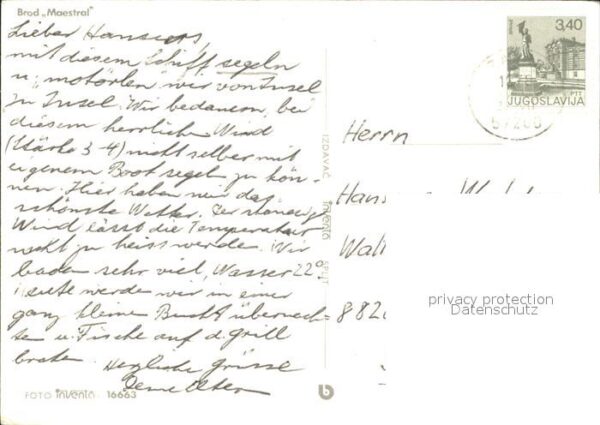 Brod „Maestral"
Lieber Hansueli,
mit diesem Schiff segeln
u. „motörlen" wir von Insel
zu Insel. Wir bedauern, bei
diesem herrlichen Wind
(Stärke 3-4) nicht selber mit
eigenem Boot segeln zu kön-
nen. Hier haben wir das
schönste Wetter. Der ständige
Wind lässt die Temperatur
nicht zu heiss werden. Wir
baden sehr viel, Wasser 22°.
Heute werden wir in einer
ganz kleinen Bucht übernach-
ten u. Fische auf d. Grill
braten. Herzliche Grüsse
Deine Eltern
FOTO inventa 16663
IZDAVAČ inventa SPLIT
3,40
PTT
JUGOSLAVIJA
Herrn
Hans
Wal
882
privacy protection
Datenschutz